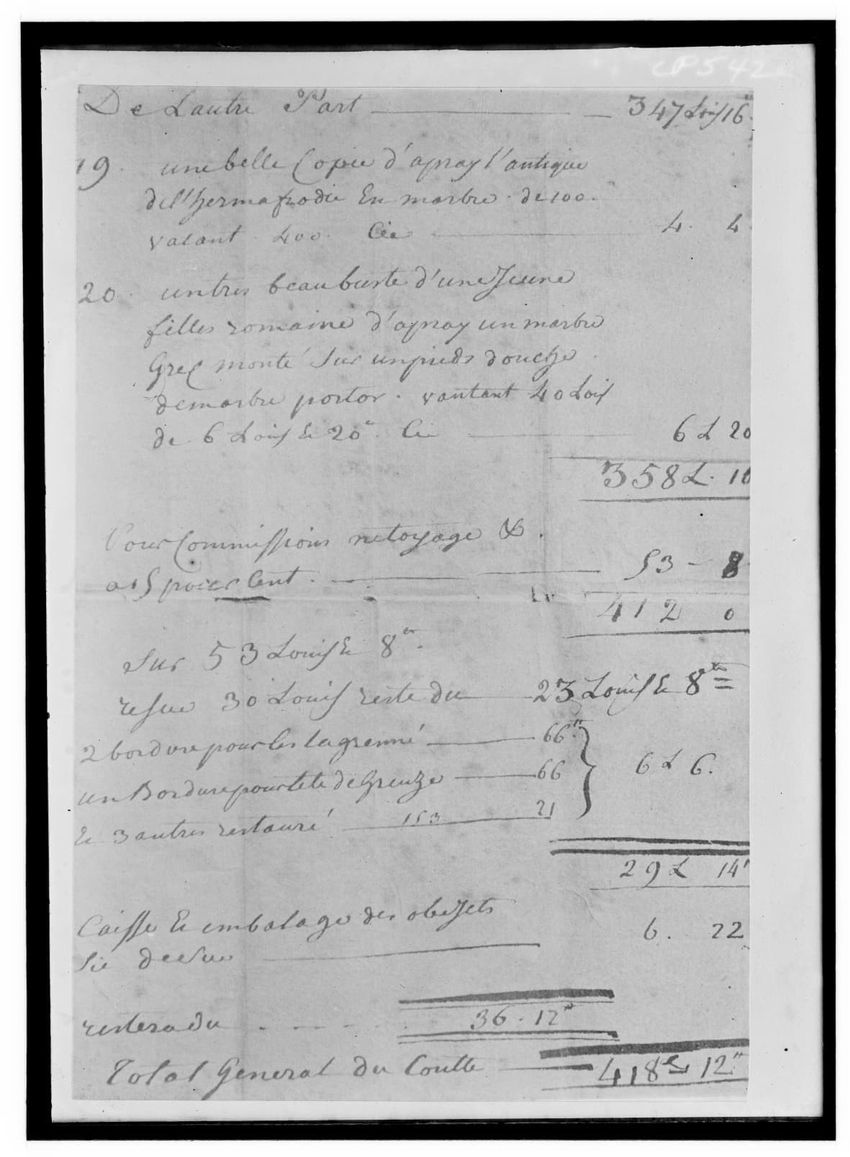 CP542
De Lautre Part 347 Louis 16
19. une belle Copie d'apray l'antique
de l'hermafrodie En marbre de 100.
valant 400. Cie 4. 4
20. un tres beau buste d'une Jeune
filles romaine d'apray un marbre
Grec monté sur un pieds douche
de marbre portor. vautant 40 Lois
de 6 Loiis & 20tt. Cie 6 L 20
358 L. 16
Pour Commissions netoyage &.
a 15 pour Cent. 53 - 8
412 0
Sur 53 Louis & 8tt.
resue 30 Louis reste du 23 Louis & 8tt
2 bordure pour les lagrenné 66tt
un Bordure pour tete de Greuze 66 6 L 6.
& 3 autres restauré 153 21
29 L 14
Caisse & embalage des obejets 6. 22
Sie desu
restera du 36 - 12tt
Total General du Coutte 418L 12tt